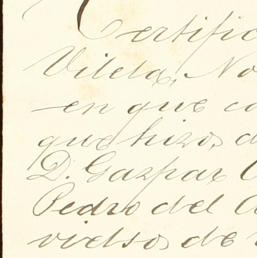 Certific
Vilela, No
en que co
que hizo, d
D. Gaspar
Pedro del
de